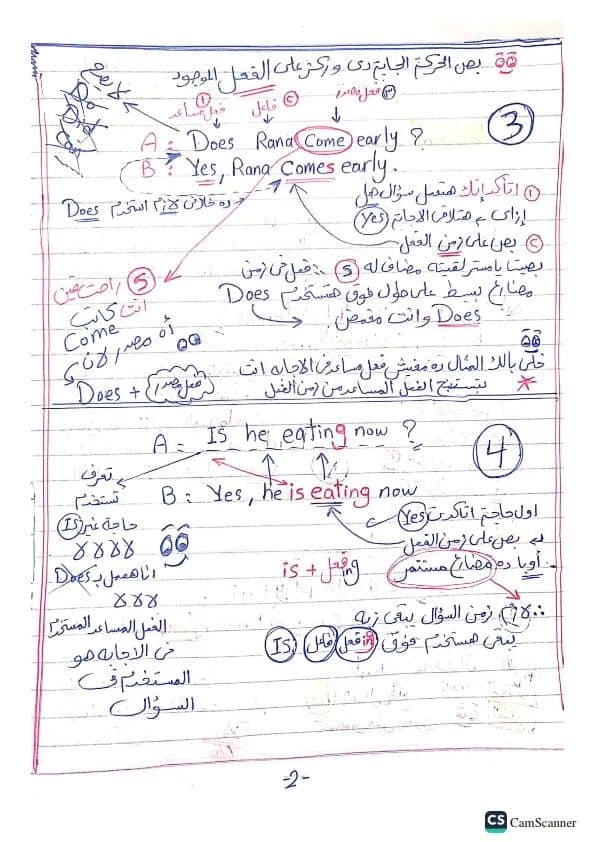 بص الحركة الجاية دى وركز على الفعل الموجود
① فعل مساعد ② فاعل ③ فعل مصدر
③
A: Does Rana Come early ?
B: Yes, Rana Comes early.
① اتأكد إنك هتعمل سؤال هل
إزاى من خلال الاجابة (Yes)
ده خلاص لازم استخدم Does
② بص على زمن الفعل
بصيت يا مستر لقيته مضاف له (S) ∴ فعل فى زمن
مضارع بسيط على طول فوق هتستخدم Does
Does وانت مغمض
(S) راحت فين
انت كاتب
Come
أه مصدر لان
Does + (فعل مصدر)
خلى بالك المثال ده مفيش فعل مساعد فى الاجابه انت
بتستنتج الفعل المساعد من زمن الفعل
④
A: Is he eating now ?
B: Yes, he is eating now
تعرف
تستخدم
حاجة غير (Is)
لا لا لا لا
انا هعمل بـ Does
لا لا لا
الفعل المساعد المستخدم
فى الاجابه هو
المستخدم ف
السؤال
اول حاجة اتاكدت (Yes)
بص على زمن الفعل
أوبا ده مضارع مستمر
is + فعل ing
∴ لازم زمن السؤال يبقى زيه
يبقى هستخدم فوق (Is) (فاعل) (فعل ing)
-2-
CS CamScanner